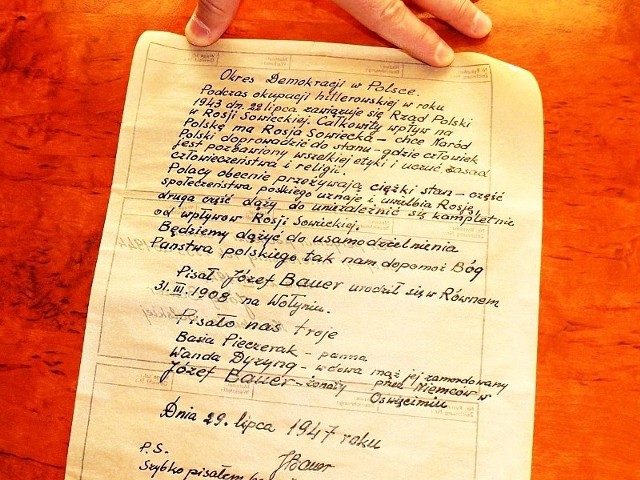 Okres Demokracji w Polsce.
Podczas okupacji hitlerowskiej w roku
1943 dn. 22 lipca zawiązuje się Rząd Polski
w Rosji Sowieckiej. Całkowity wpływ na
Polskę ma Rosja Sowiecka – chce Naród
Polski doprowadzić do stanu – gdzie człowiek
jest pozbawiony wszelkiej etyki i uczuć, zasad
człowieczeństwa i religii.
Polacy obecnie przeżywają ciężki stan – część
społeczeństwa polskiego uznaje i uwielbia Rosję,
druga część dąży do uniezależnić się kompletnie
od wpływow Rosji Sowieckiej.
Będziemy dążyć do usamodzielnienia
Państwa polskiego tak nam dopomoż Bóg
Pisał Józef Bauer urodził się w Równem
31. III. 1908 na Wołyniu.
Pisało nas troje
Basia Pieczerak – panna
Wanda Dyzyng – wdowa mąż jej zamordowany
przez Niemców w
Józef Bauer – żonaty
Oswięcimiu
Dnia 29. lipca 1947 roku
JBauer
P.S.
Szybko pisałem